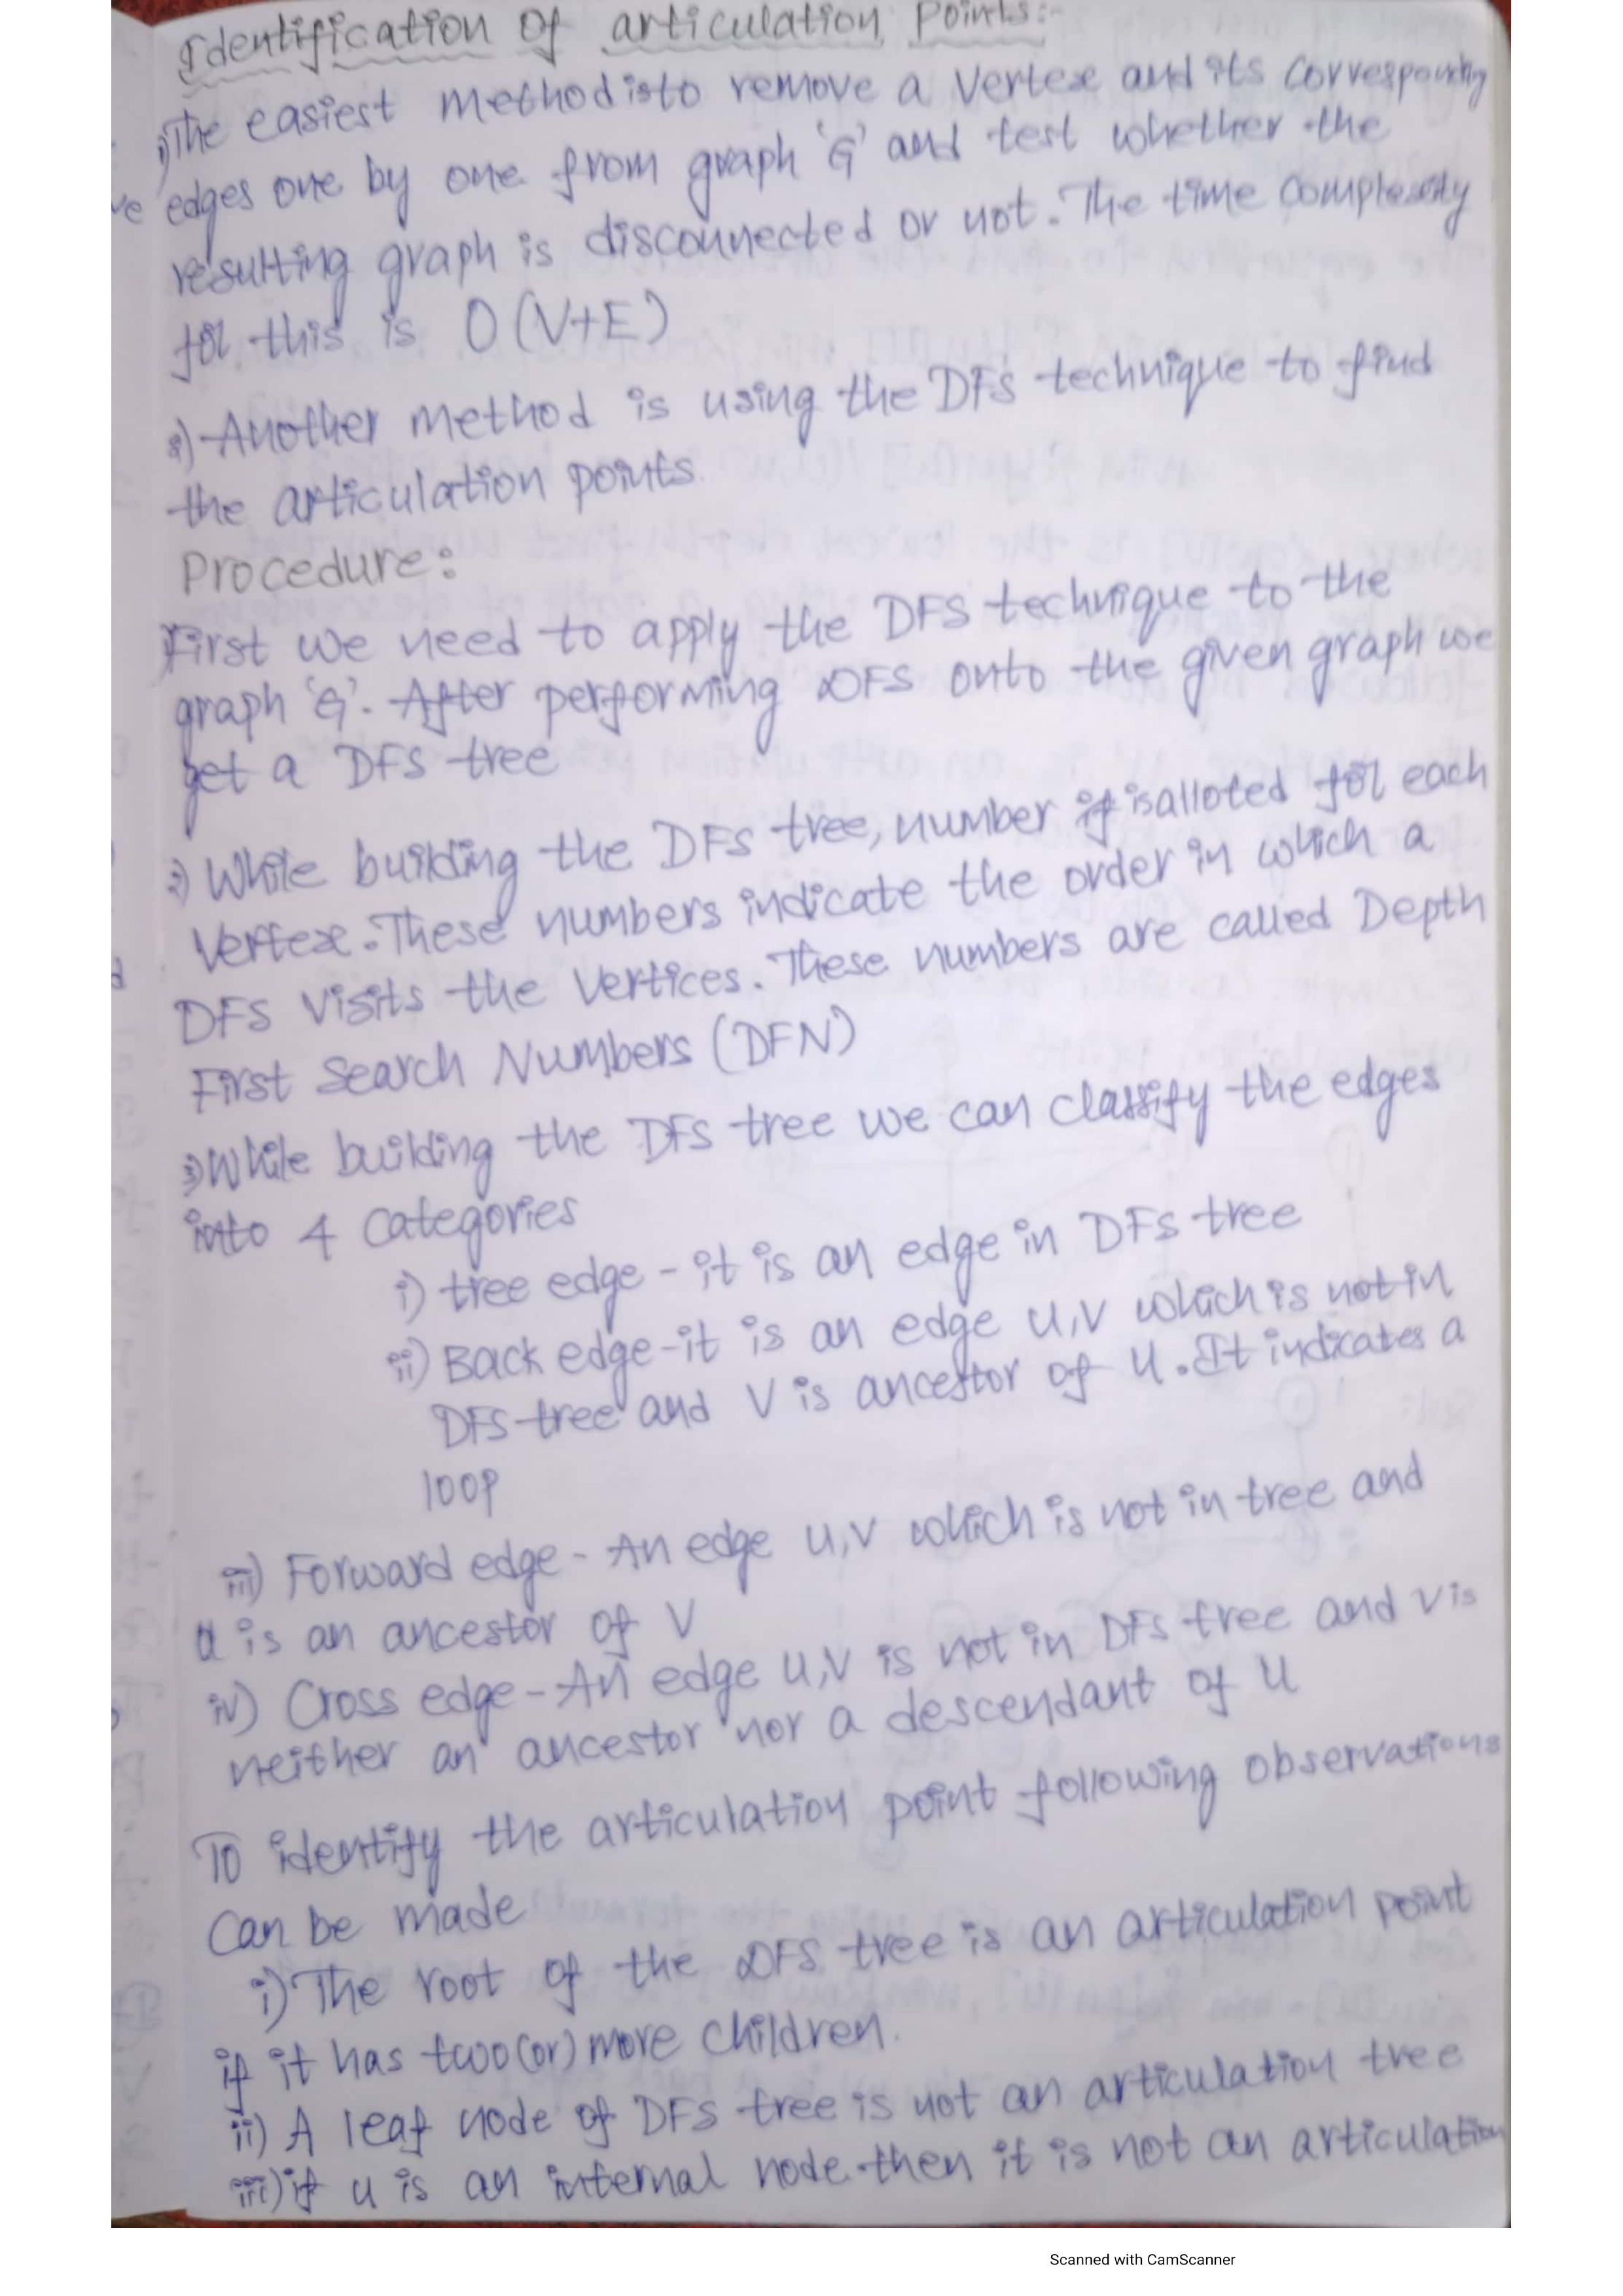 Identification of articulation points:-
1) The easiest method is to remove a vertex and its corresponding
ve edges one by one from graph 'G' and test whether the
resulting graph is disconnected or not. The time complexity
for this is O(V+E)
2) Another method is using the DFS technique to find
the articulation points.
Procedure:
First we need to apply the DFS technique to the
graph 'G'. After performing DFS onto the given graph we
get a DFS tree
2) While building the DFS tree, number if is alloted for each
vertex. These numbers indicate the order in which a
DFS visits the vertices. These numbers are called Depth
First Search Numbers (DFN)
3) While building the DFS tree we can classify the edges
into 4 categories
i) tree edge - it is an edge in DFS tree
ii) Back edge - it is an edge u,v which is not in
DFS tree and v is ancestor of u. It indicates a
loop
iii) Forward edge - An edge u,v which is not in tree and
u is an ancestor of v
iv) Cross edge - An edge u,v is not in DFS tree and v is
neither an ancestor nor a descendant of u
To identify the articulation point following observations
can be made
i) The root of the DFS tree is an articulation point
if it has two (or) more children.
ii) A leaf node of DFS tree is not an articulation tree
iii) if u is an internal node then it is not an articulation
Scanned with CamScanner